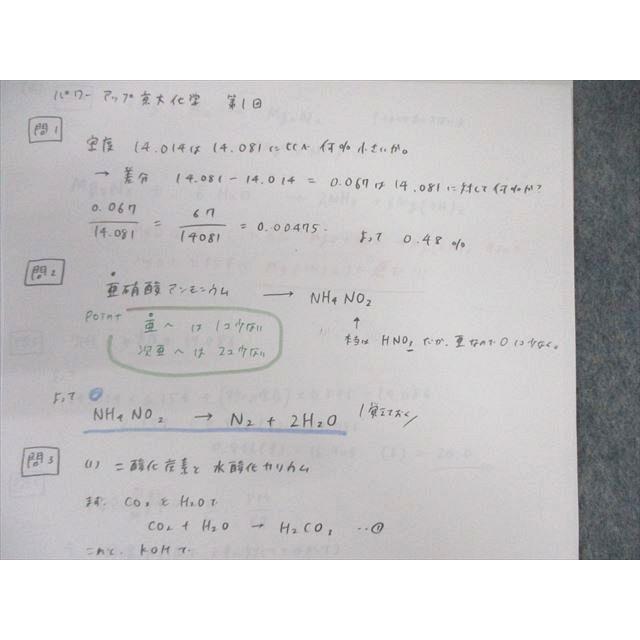 パワーアップ京大化学 第1回
問1
密度 14.014は 14.081に比べ何%小さいか。
→ 差分 14.081 - 14.014 = 0.067は 14.081に対して何%か?
0.067/14.081 = 67/14081 = 0.00475. よって 0.48 %
問2
亜硝酸アンモニウム → NH4NO2
POINT
亜〜 は 1コ少ない
次亜〜は 2コ少ない
↑
本当は HNO3 だが、亜なので O 1コ少なく。
よって
NH4NO2 → N2 + 2H2O 覚えておく
問3
(1) 二酸化炭素と水酸化カリウム
まず、CO2とH2Oで
CO2 + H2O → H2CO3 …①
これと、KOHで